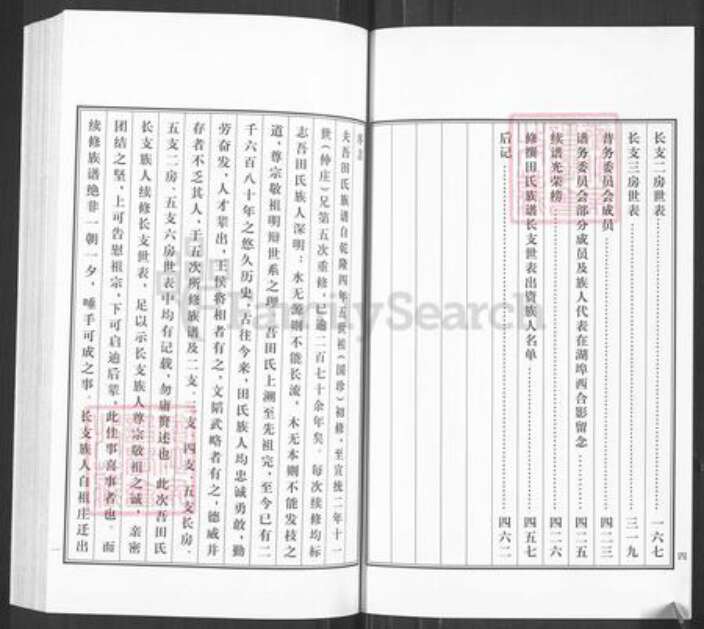 长支二房世表……一六七
长支三房世表……三一九
谱务委员会成员……四二三
谱务委员会部分成员及族人代表在湖埠西合影留念……四二五
续谱光荣榜……四二六
修撰田氏族谱长支世表出资族人名单……四五七
后记……四六二
四
夫吾田氏族谱自乾隆四年五世祖（国珍）初修，至宣统二年十一
世（仲庄）兄第五次重修，已逾二百七十余年矣。每次续修均标
志吾田氏族人深明：水无源则不能长流，木无本则不能发枝之
道，尊宗敬祖明辩世系之理。吾田氏上溯至先祖完，至今已有二
千六百八十年之悠久历史，古往今来，田氏族人均忠诚勇敢，勤
劳奋发，人才辈出，王侯将相者有之，文韬武略者有之，德威并
存者不乏其人，于五次所修族谱及二支、三支、四支、五支长房、
五支二房、五支六房世表中均有记载，勿庸赘述也。此次吾田氏
长支族人续修长支世表，足以示长支族人尊宗敬祖之诚，亲密
团结之坚，上可告慰祖宗，下可启迪后辈，此佳事喜事者也。而
续修族谱绝非一朝一夕，唾手可成之事。长支族人自祖庄迁出
一
FamilySearch